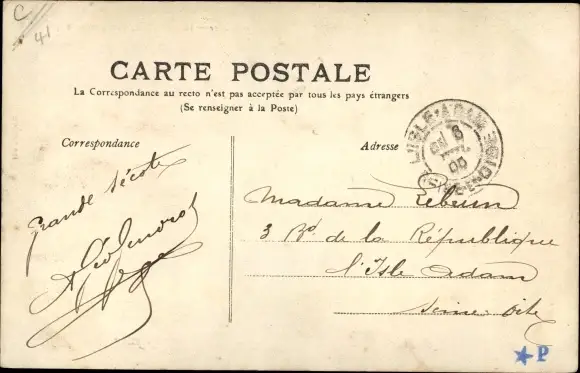 C
41
CARTE POSTALE
La Correspondance au recto n'est pas acceptée par tous les pays étrangers
(Se renseigner à la Poste)
Correspondance
Adresse
L'ISLE-ADAM SEINE-ET-OISE
8
05
Grande Sécote
Madame Lebrun
3 Bd de la République
l'Isle Adam
Seine-Oise
★P